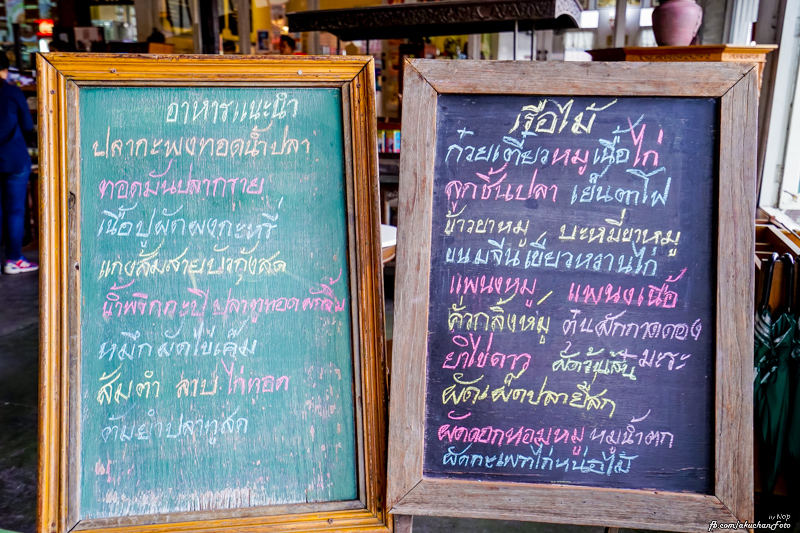 อาหารแนะนำ
ปลากะพงทอดน้ำปลา
ทอดมันปลากราย
เนื้อปูผัดผงกะหรี่
แกงส้มสายบัวกุ้งสด
น้ำพริกกะปิ ปลาทูทอด ผักจิ้ม
หมึกผัดไข่เค็ม
ส้มตำ ลาบ ไก่ทอด
ต้มยำปลาทูสด
เรือไม้
ก๋วยเตี๋ยวหมู เนื้อ ไก่
ลูกชิ้นปลา เย็นตาโฟ
ข้าวยาหมู บะหมี่ยาหมู
ขนมจีนเขียวหวานไก่
แพนงหมู แพนงเนื้อ
คั่วกลิ้งหมู ต้มผักกาดดอง
ยำไข่ดาว ผัดวุ้นเส้น มะระ
ผัดเผ็ดปลายี่สก
ผัดดอกหอมหมู หมูน้ำตก
ผัดกะเพราไก่หน่อไม้
by Nop
fb.com/akuchanFoto